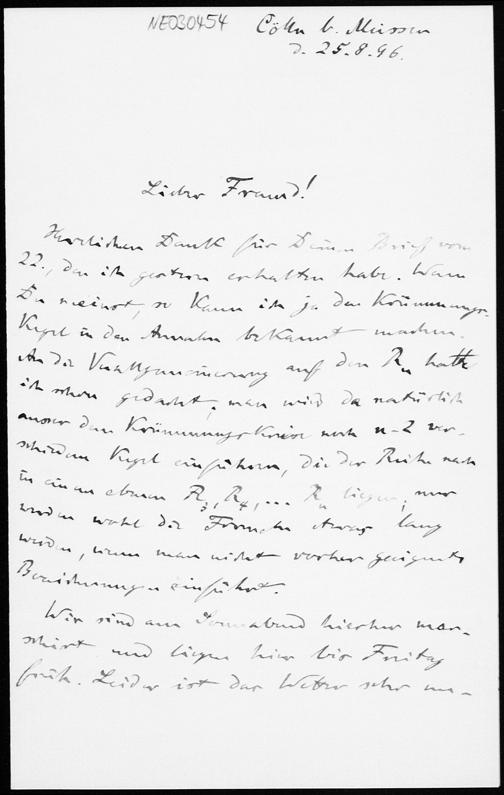 NE030454
Cölln b. Meissen
d. 25.8.96.
Lieber Freund!
Herzlichen Dank für Deinen Brief vom
22., den ich gestern erhalten habe. Wenn
Du meinst, so kann ich ja den Krümmungs-
kegel in den Annalen bekannt machen.
An die Verallgemeinerung auf den Rn hatte
ich schon gedacht; man wird da natürlich
ausser dem Krümmungskreise noch n-2 ver-
schiedene Kegel einführen, die der Reihe nach
in einem ebenen R3, R4, ... Rn liegen; nur
werden wohl die Formeln etwas lang
werden, wenn man nicht vorher geeignete
Bezeichnungen einführt.
Wir sind am Sonnabend hierher mar-
schirt und liegen hier bis Freitag
früh. Leider ist das Wetter sehr un-